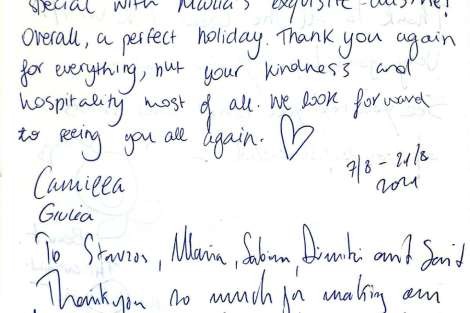 special with Maria's exquisite cuisine!
Overall, a perfect holiday. Thank you again
for everything, but your kindness and
hospitality most of all. We look forward
to seeing you all again. ♡
7/8 - 21/8
2021
Camilla
Giulia
To Stavros, Maria, Sabina, Dimitri and Said
Thank you so much for making our